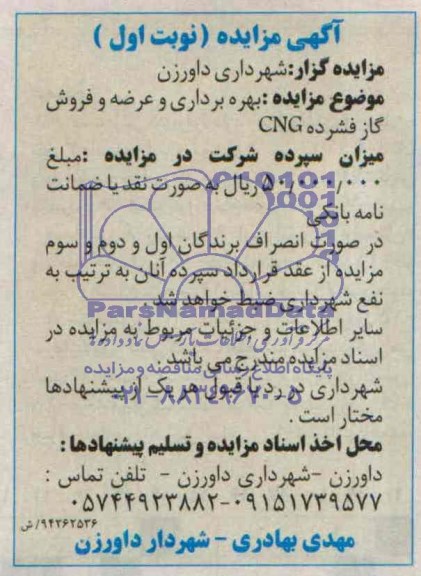 آگهی مزایده (نوبت اول)
مزایده گزار: شهرداری داورزن
موضوع مزایده: بهره برداری و عرضه و فروش
گاز فشرده CNG
میزان سپرده شرکت در مزایده: مبلغ
۵۰/۰۰۰/۰۰۰ ریال به صورت نقد یا ضمانت
نامه بانکی
در صورت انصراف برندگان اول و دوم و سوم
مزایده از عقد قرارداد سپرده آنان به ترتیب به
نفع شهرداری ضبط خواهد شد.
ParsNamadData
سایر اطلاعات و جزئیات مربوط به مزایده در
اسناد مزایده مندرج می باشد.
پایگاه اطلاع رسانی مناقصه و مزایده
شهرداری در رد یا قبول هر یک از پیشنهادها
۰۲۱-۸۸۳۴۹۶۷۰-۵
مختار است.
محل اخذ اسناد مزایده و تسلیم پیشنهادها:
داورزن - شهرداری داورزن - تلفن تماس:
۰۵۷۴۴۹۲۳۸۸۲-۰۹۱۵۱۷۳۹۵۷۷
۹۴۲۶۲۵۳۶/ش
مهدی بهادری - شهردار داورزن